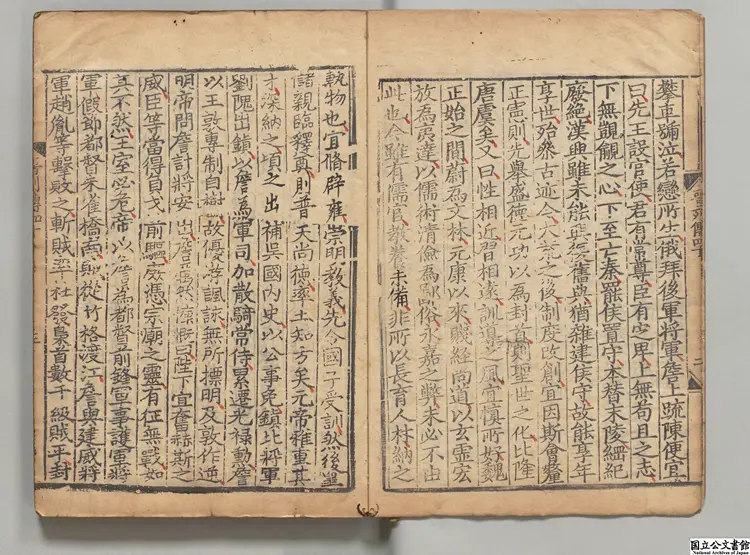 攀車號泣若戀所生俄拜後軍將軍詹上疏陳便宜
曰先王設官使君有常尊臣有定卑上無苟且之志
下無覬覦之心下至亡秦罷侯置守本替末陵綱紀
廢絕漢興雖未能興復舊典猶雜建侯守故能享年
享世殆參古迹今大荒之後制度改創宜因斯會釐
正憲則先舉盛德元功以為封首則聖世之化比隆
唐虞矣又曰性相近習相遠訓導之風宜慎所好魏
正始之間蔚為文林元康以來賤經尚道以玄虛宏
放為夷達以儒術清儉為鄙俗永嘉之弊未必不由
此也今雖有儒官教養未備非所以長育人材納之
軌物也宜脩辟雍崇明教義先令國子受訓然後皇
儲親臨釋奠則普天尚德率土知方矣元帝雅重其
才深納之頃之出補吳國內史以公事免鎮北將軍
劉隗出鎮以詹為軍司加散騎常侍累遷光祿勳詹
以王敦專制自樹故優游諷詠無所標明及敦作逆
明帝問詹計將安出詹厲然慷慨曰陛下宜奮赫斯之
威臣等當得負戈前驅庶憑宗廟之靈有征無戰如
其不然王室必危帝以詹為都督前鋒軍事護軍將
軍假節都督朱雀橋南賊從竹格渡江詹與建威將
軍趙胤等擊敗之斬賊率杜發梟首數千級賊平封
国立公文書館
National Archives of Japan